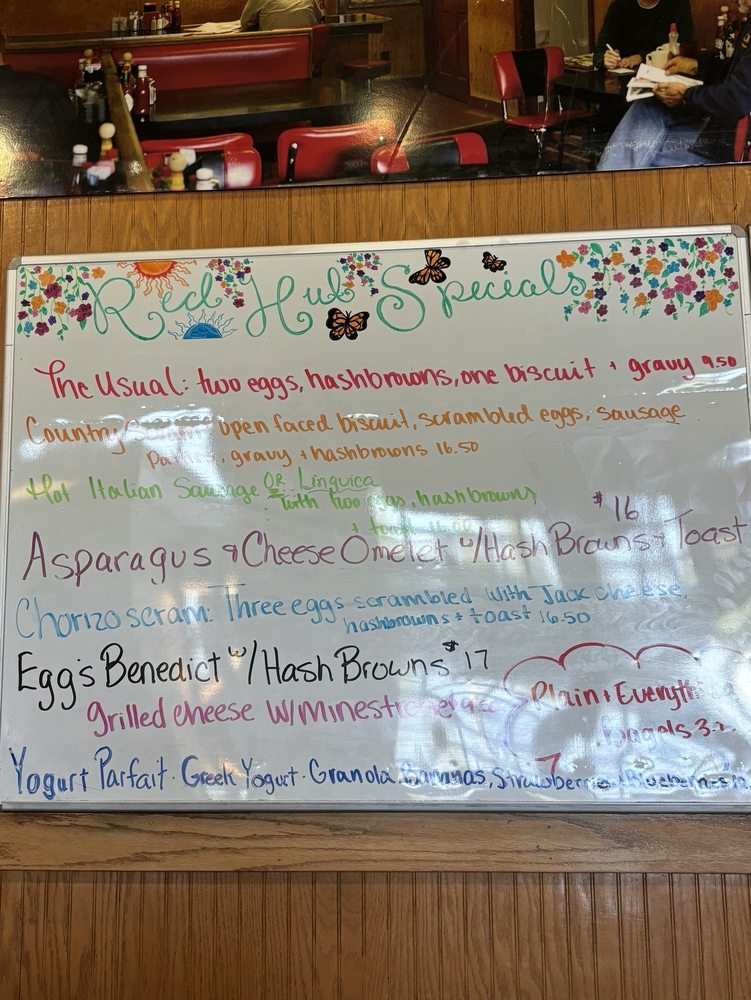 Red Hub Specials
The Usual: two eggs, hashbrowns, one biscuit + gravy 9.50
Country open faced biscuit, scrambled eggs, sausage
gravy + hashbrowns 16.50
Hot Italian Sausage OR Linguica
with two eggs, hashbrowns
+
$16
Asparagus & Cheese Omelet w/Hash Browns + Toast
Chorizo scram: Three eggs scrambled with Jack cheese,
hashbrowns + toast 16.50
Egg's Benedict w/Hash Browns $17
grilled cheese w/Minestrone
Plain + Everything
Bagels
Yogurt Parfait · Greek Yogurt · Granola, Bananas, Strawberries + Blueberries